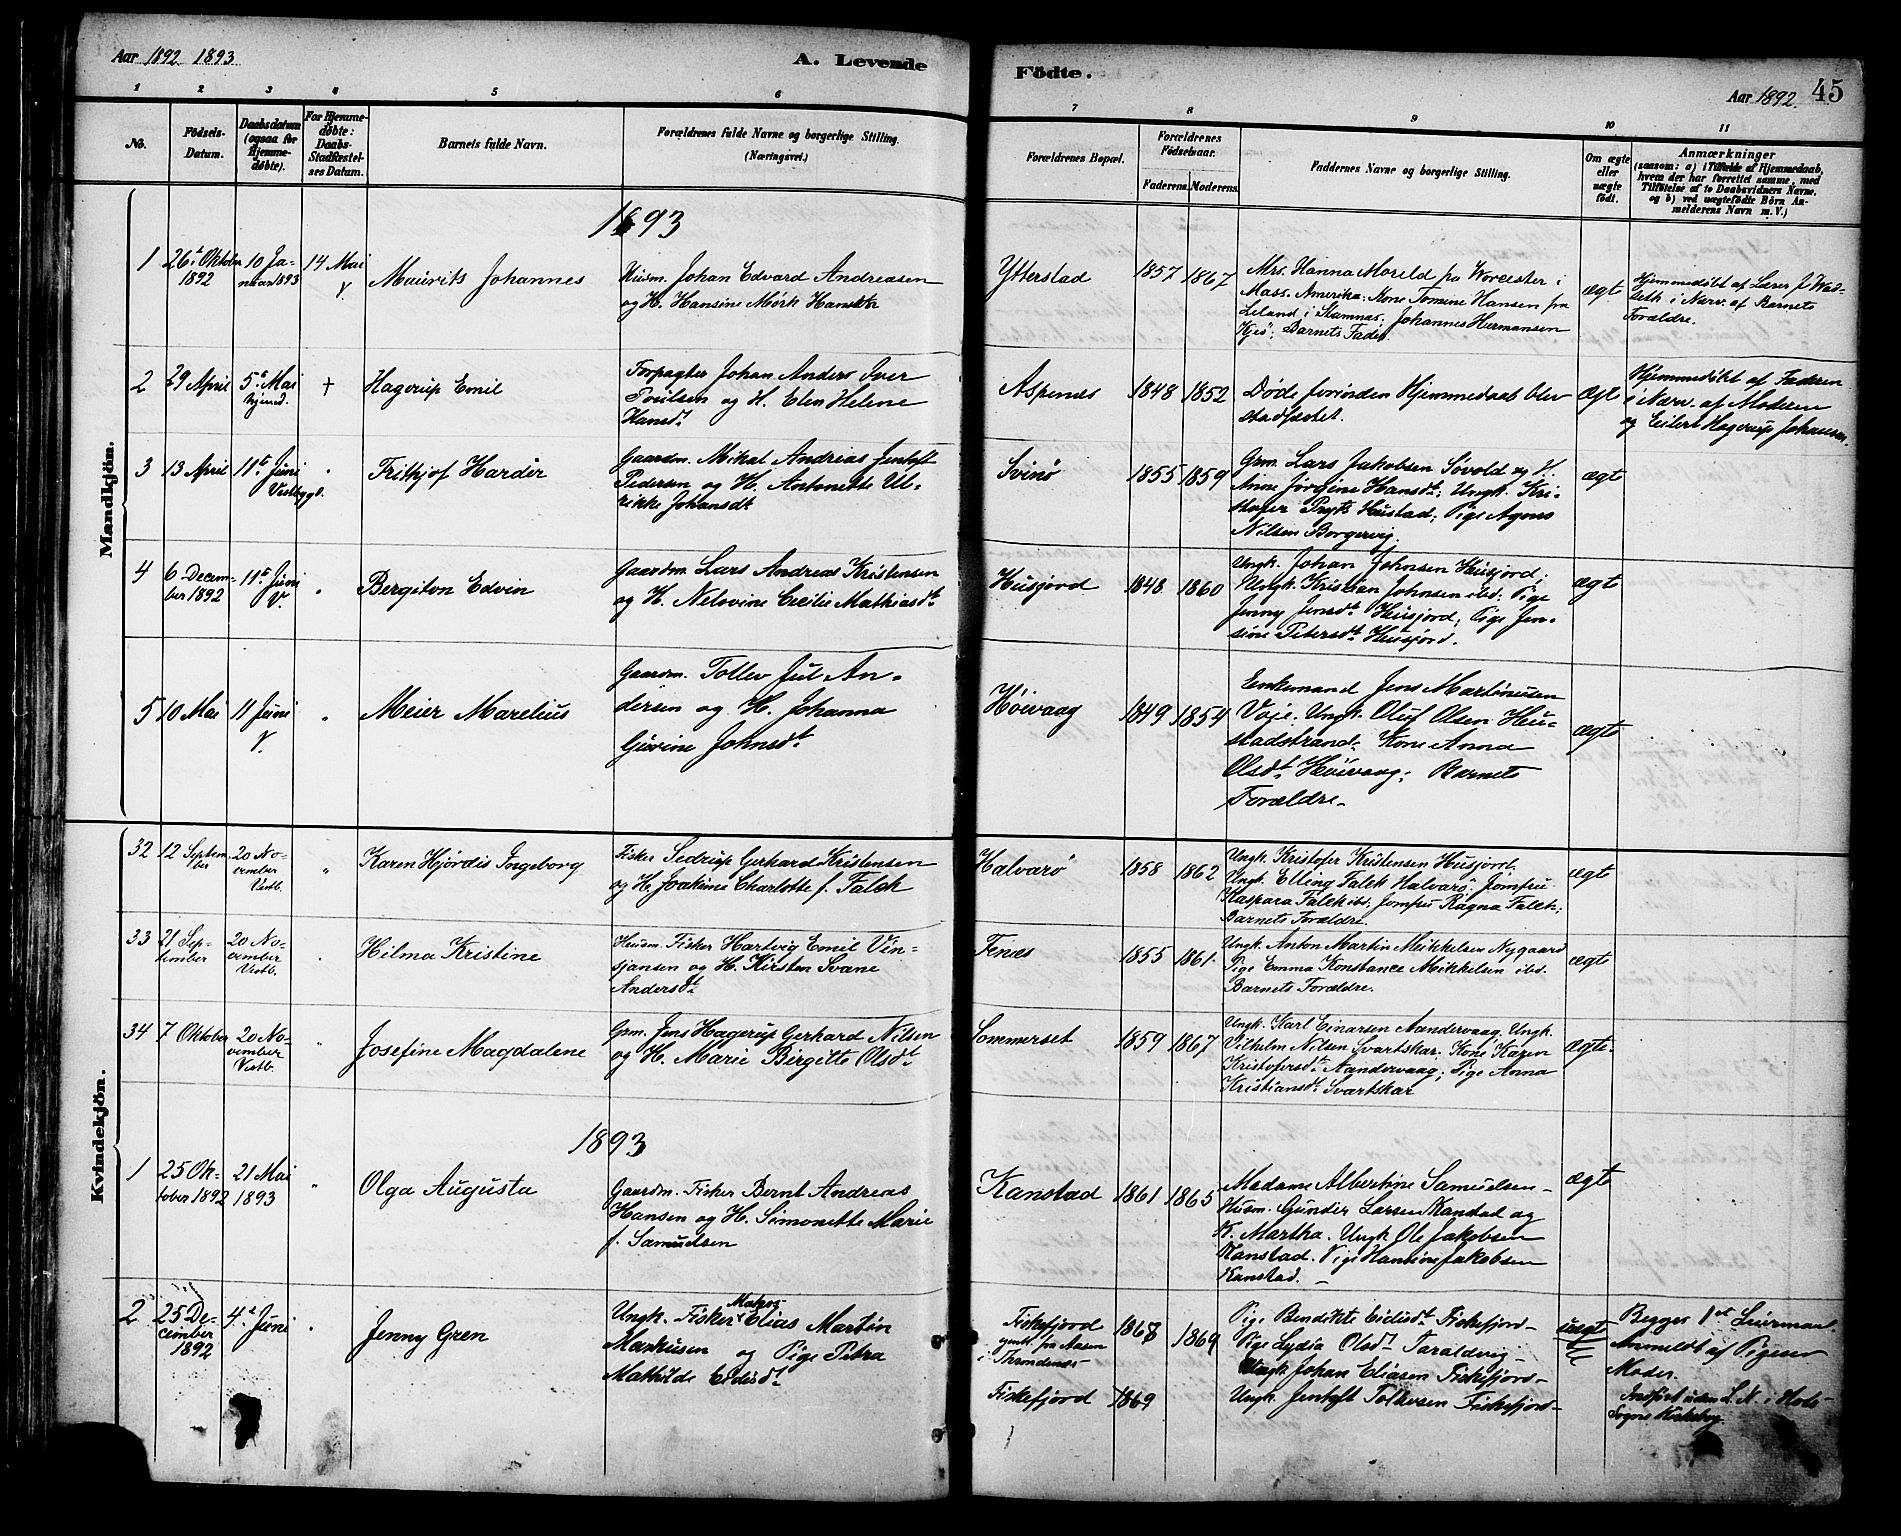 Aar 1892 1893
A. Levende
Fødte.
Aar 1892.
45
1 2 3 4 5 6 7 8 9 10 11
No.
Fødsels-
Datum.
Daabsdatum
(ogsaa for
Hjemme-
døbte).
For Hjemme-
døbte:
Daabs-
Stadfæstel-
ses Datum.
Barnets fulde Navn.
Forældrenes fulde Navne og borgerlige Stilling.
(Næringsvei.)
Forældrenes Bopæl.
Forældrenes
Fødselsaar.
Faderens. Moderens.
Faddernes Navne og borgerlige Stilling.
Om ægte
eller
uægte
født.
Anmærkninger
(saasom: a) i Tilfælde af Hjemmedaab,
hvem der har forrettet samme, med
Tilføielse af to Daabsvidners Navne,
og b) ved uægtefødte Børn An-
melderens Navn m. V.)
Mandkjön.
1893
1
26t Oktober
1892
10 Ja-
nuar 1893
14 Mai
V.
Maurits Johannes
Husm. Johan Edvard Andreasen
og H. Hansine Mørk Hansdtr
Ytterstad
1857
1867
Mrs. Hanna Moreld fra Worcester i
Mass. Amerika. Kone Tomine Hansen fra
Leland i Stamnæs. Johannes Hermansen
Kjeø; Barnets Fader.
ægt
Hjemmedøbt af Lærer J. Wad-
seth i Nærv. af Barnets
Forældre.
2
29 April
5t Mai
hjemmed.
+
Hagerup Emil
Forpagter Johan Anders Iver
Poulsen og H. Elen Helene
Hansdt
Aspenes
1848
1852
Døde forinden Hjemmedaab blev
stadfæstet.
Ægt
Hjemmedøbt af Faderen
i Nærv. af Moderen
og Eilert Hagerup Johansen.
3
13 April
11te Juni
Vestbygd.
"
Frithjof Harder
Gaardm. Mikal Andreas Jentoft
Pedersen og H. Antonette Ul-
rikke Johansdt
Svinø
1855
1859
Gm. Lars Jakobsen Søvold og H.
Anne Jørgine Hansdt; Ungk. Kri-
stofer Prytz Hustad; Pige Agnes
Nilsen Borgervig.
ægt
4
6 Decem-
ber 1892
11te Juni
V.
"
Bergiton Edvin
Gaardm. Lars Andreas Kristensen
og H. Nelovine Cecilie Mathiasdt
Husjord
1848
1860
Ungk. Johan Johnsen Husjord;
Ungk. Kristian Johnsen ibd: Pige
Jenny Jensdt Husjord; Pige Jen-
sine Petersdt Husjord.
ægt
5
10 Mai
11 Juni
V.
"
Meier Marelius
Gaardm. Tollev Jul An-
dersen og H. Johanna
Gurine Johnsdt
Høivaag
1849
1854
Enkemand Jens Martinusen
Voje. Ungk. Oluf Olsen Hu-
stadstrand. Kone Anna
Olsdt Høivaag; Barnets
Forældre.
ægt
Kvindekjön.
32
12 Septem-
ber
20 No-
vember
Vestb.
"
Karen Hjørdis Ingeborg
Fisker Sedrup Gerhard Kristensen
og H. Joakime Charlotte f. Falch
Halvarø
1858
1862
Ungk. Kristofer Kristensen Husjord.
Ungk. Elling Falck Halvarø; Jomfru
Kaspara Falck ibd; Jomfru Ragna Falck;
Barnets Forældre.
ægt
33
21 Sep-
tember
20 No-
vember
Vestb.
"
Hilma Kristine
Husm. Fisker Hartvig Emil Vin-
sjansen og H. Kirsten Svane
Andersdt
Tenæs
1855
1861
Ungk. Anton Martin Mikkelsen Nygaard
Pige Emma Konstance Mikkelsen ibd.
Barnets Forældre.
ægt
34
7 Oktober
20 No-
vember
Vestb.
"
Josefine Magdalene
Gm. Jens Hagerup Gerhard Nilsen
og H. Marie Birgitte Olsdt
Sommerset
1859
1867
Ungk. Karl Einarsen Aandervaag, Ungk.
Vilhelm Nilsen Svartskar. Kone Karen
Kristofersdt Aandervaag; Pige Anna
Kristiansdt Svartskar
ægte
1893
1
25 Ok-
tober 1892
21 Mai
1893
"
Olga Augusta
Gaardm. Fisker Bernt Andreas
Hansen og H. Simonette Marie
f. Samuelsen
Kanstad
1861
1865
Madame Albertine Samuelsen-
Husm. Gunder Larsen Kanstad og
K. Martha. Ungk Ole Jakobsen
Kanstad. Pige Hansine Jakobsen
Kanstad.
ægt
2
25 De-
cember
1892
4t Juni
"
Jenny Gren
Ungk. Fisker Elias Martin
Markusen og Pige Petra
Mathilde Eidisdt
Fiskefjord
i Throndenæs
Fiskefjord
1868
1869
1869
Pige Bendikte Eidisdt Fiskefjord-
Pige Lydia Olsdt Taraldvig-
Ungk. Johan Eliasen Fiskefjord-
Ungk. Jentoft Tollevsen Fiskefjord-
uægt
Begges 1ste Leiermaal.
Anmeldt af Pigens
Moder.
Indført uden L. N. i Hols
Sogns Kirkebog.